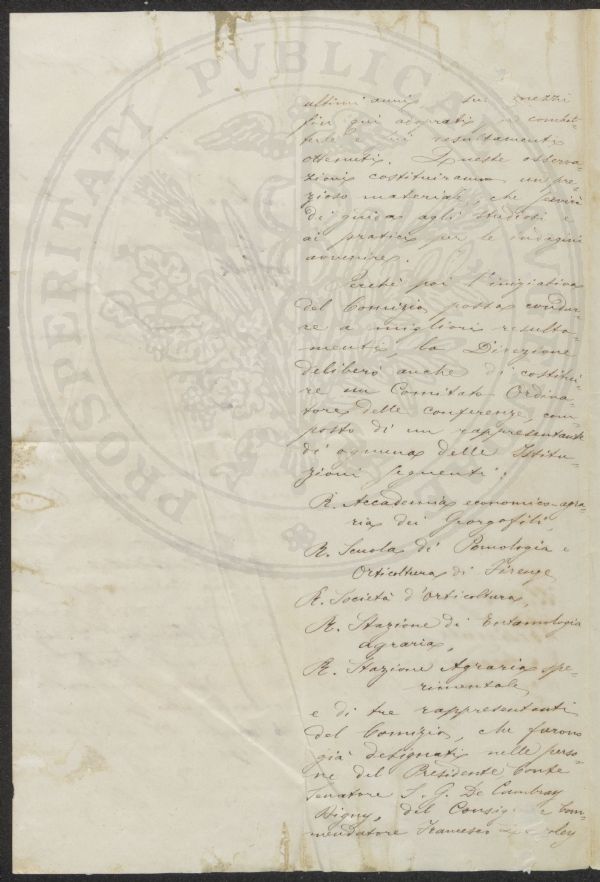 PROSPERITATI PUBLICAE
ultimi anni, sui mezzi
fin qui adoprati a combat-
terle e sui resultamenti
ottenuti. Queste osserva-
zioni costituiranno un pre-
zioso materiale, che servirà
di guida agli studiosi e
ai pratici per le indagini
avvenire.
Perché poi l'iniziativa
del Comizio possa condur-
re a migliori resulta-
menti, la Direzione
deliberò anche di costitui-
re un Comitato Ordina-
tore delle conferenze, com-
posto di un rappresentante
di ognuna delle Istitu-
zioni seguenti:
R. Accademia economico-agra-
ria dei Georgofili,
R. Scuola di Pomologia e
Orticoltura di Firenze
R. Società d'Orticoltura,
R. Stazione di Entomologia
agraria,
R. Stazione Agraria spe-
rimentale,
e di tre rappresentanti
del Comizio, che furono
già designati nelle perso-
ne del Presidente Conte
Senatore L. G. De Cambray
Digny, del Consig e Com-
mendatore Francesco